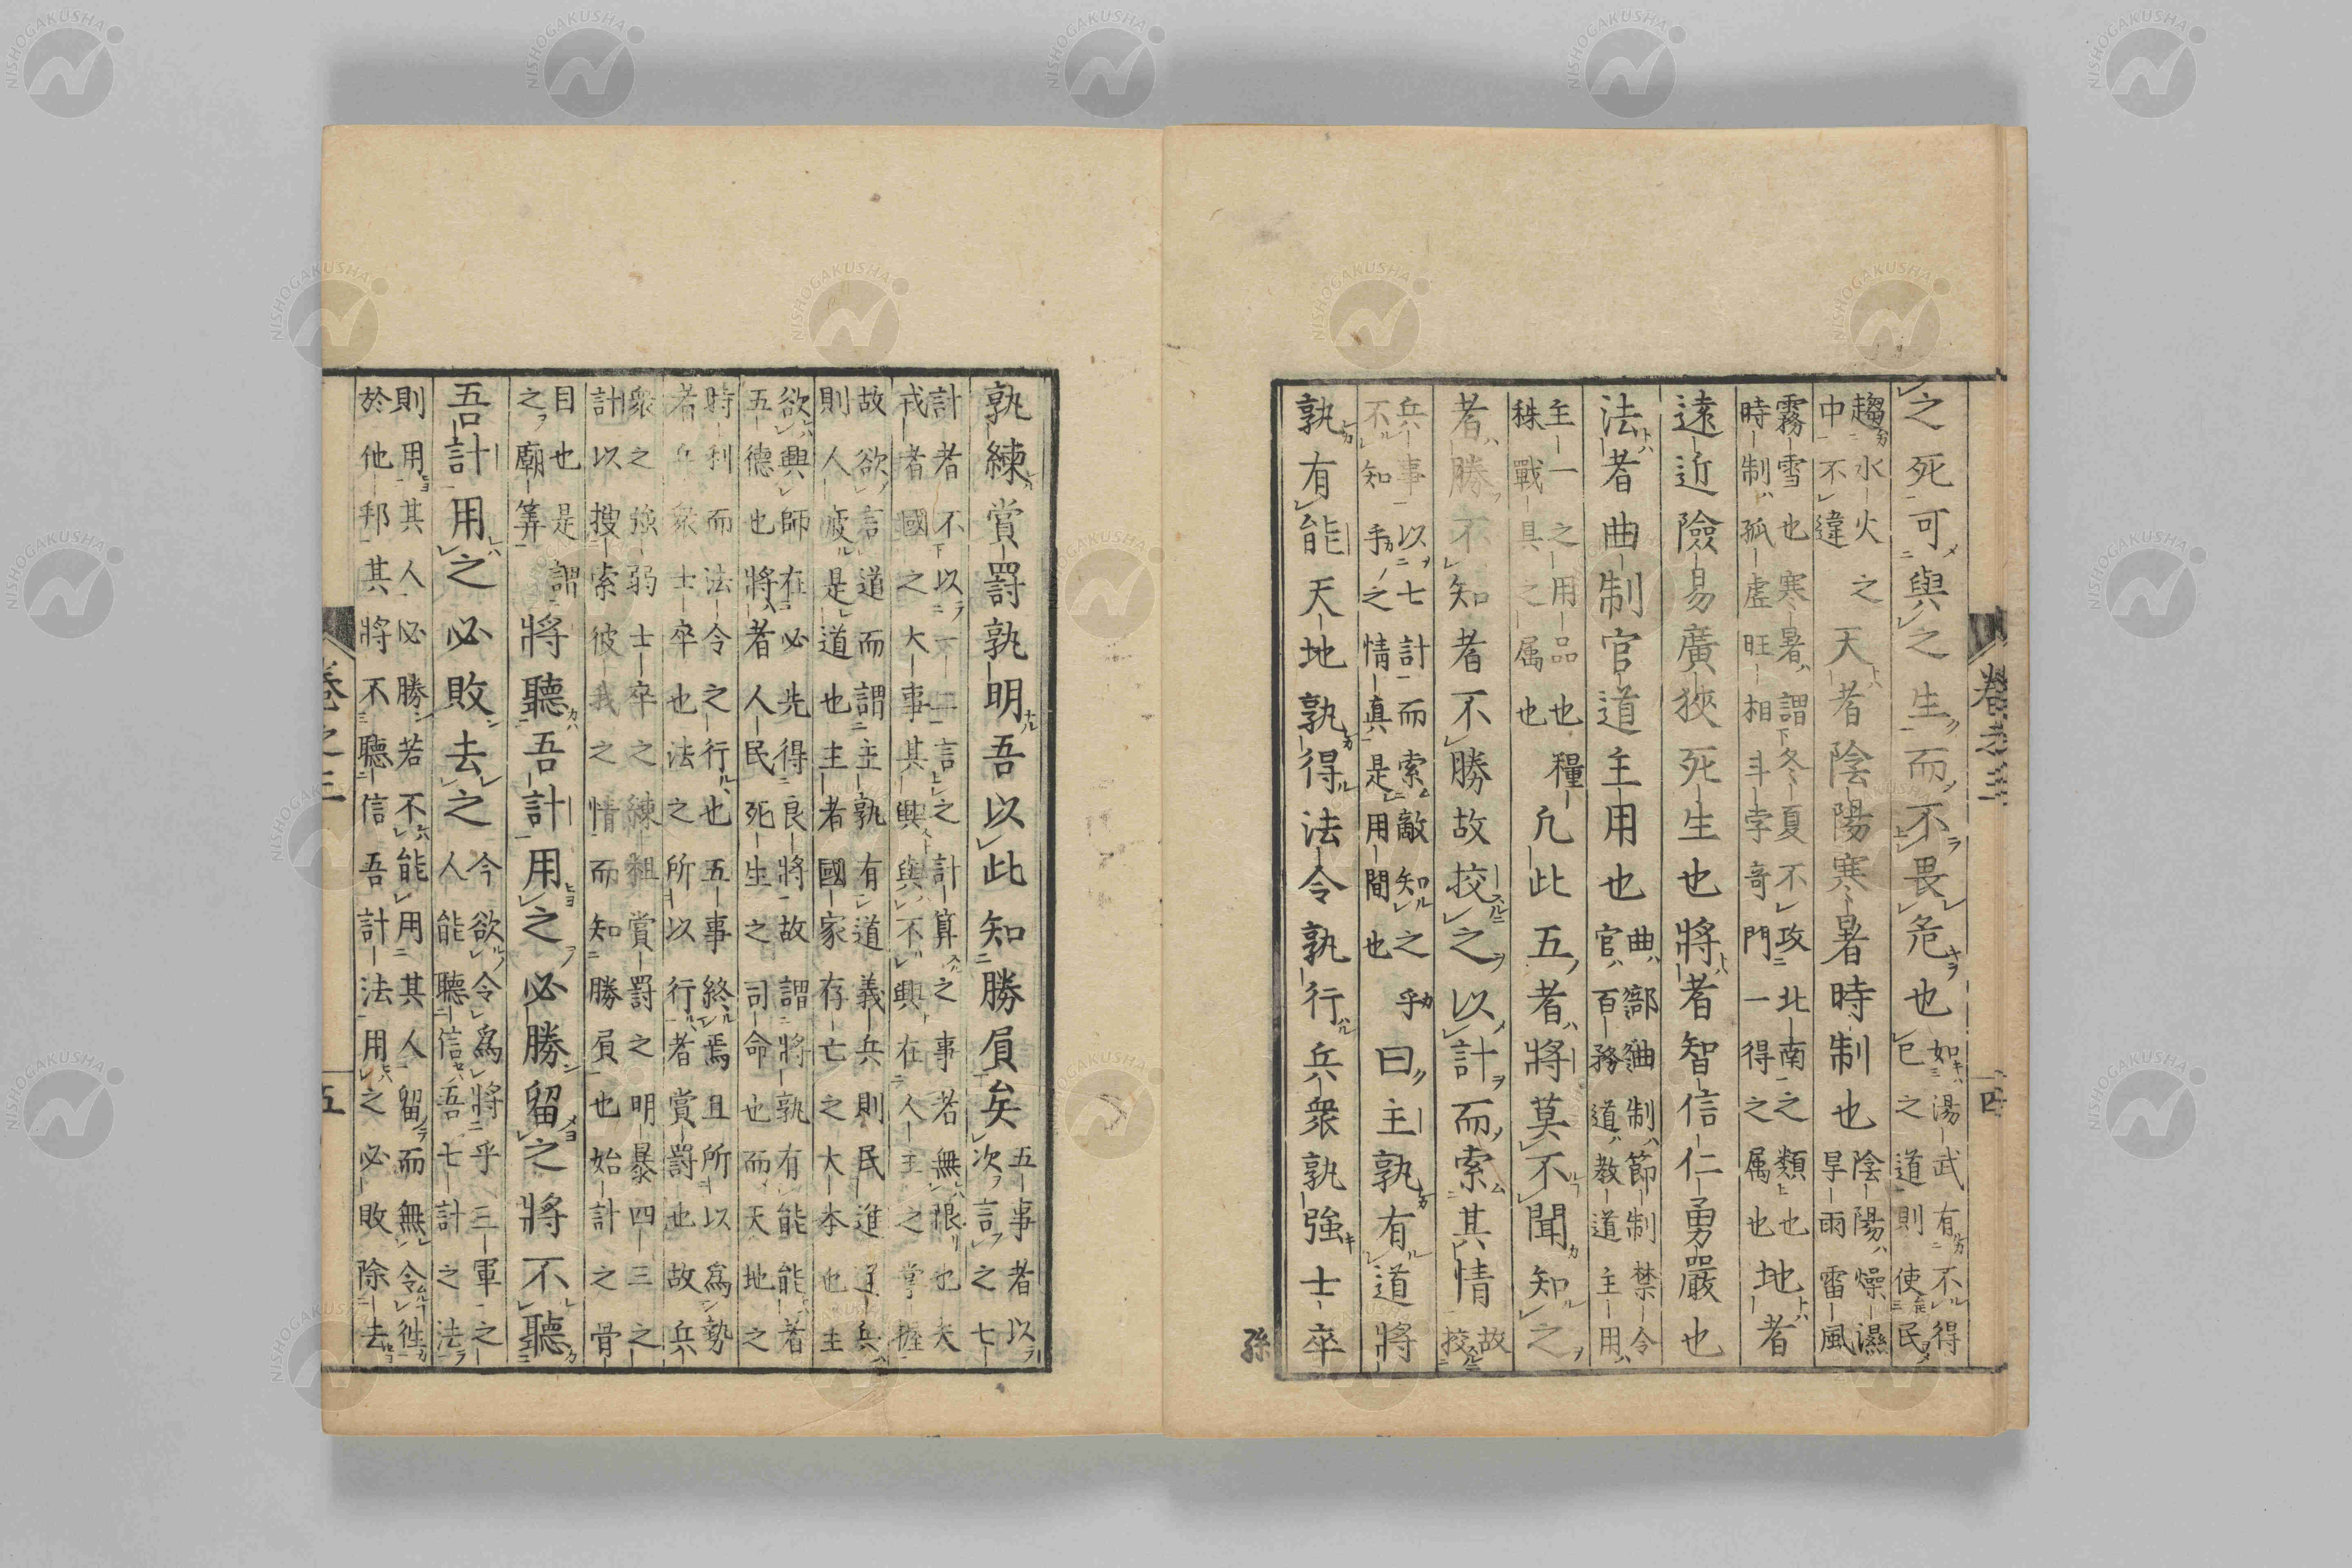 卷之三
四
之死可與之生而不畏危也
如湯武有不得
已之道則使民
趨水火之
中不違
天者陰陽寒暑時制也
陰陽燥濕
旱雨雷風
霧雪也寒暑謂冬夏不攻北南之類也
時制孤虛旺相斗孛奇門一得之属也
地者
遠近險易廣狹死生也將者智信仁勇嚴也
法者曲制官道主用也
曲部曲制節制禁令
官百務道教道主用
主一之用品也糧
秣戰具之属也
凡此五者將莫不聞知之
者勝不知者不勝故挍之以計而索其情
故
挍
兵事以七計而索敵知之乎
不知乎之情真是用間也
曰主孰有道將
孰有能天地孰得法令孰行兵衆孰強士卒
孫
孰練賞罰孰明吾以此知勝負矣
五事者以
次言之七
計者不以一二言之計算之事若無限也夫
戎者國之大事其興與不興在人主之掌握
故欲言道而謂主孰有道義兵則民進運兵
則人疲是道也主者國家存亡之大本也主
欲興師在必先得良將故謂將孰有能能者
五德也將者人民死生之司命也而天地之
時利而法令之行也五事終焉且所以為勢
者兵衆士卒也法之所以行者賞罰也故兵
衆之強弱士卒之練粗賞罰之明暴四三之
計以搜索彼我之情而知勝負也始計之骨
目也是謂
之廟筭
將聽吾計用之必勝留之將不聽
吾計用之必敗去之
今欲令為將乎三軍之
人能聽信吾七計之法
則用其人必勝若不能用其人留而無令徃
於他邦其將不聽信吾計法用之必敗除去
卷之三
五